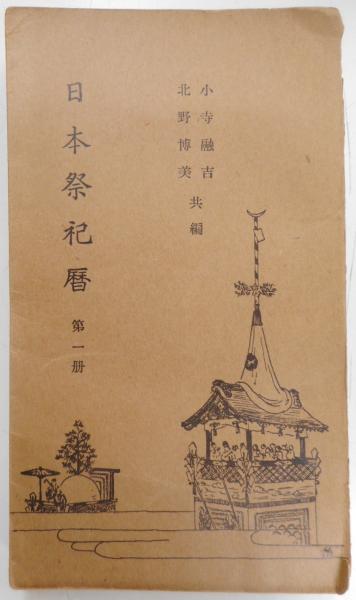 小寺融吉
北野博美 共編
日本祭祀曆 第一册